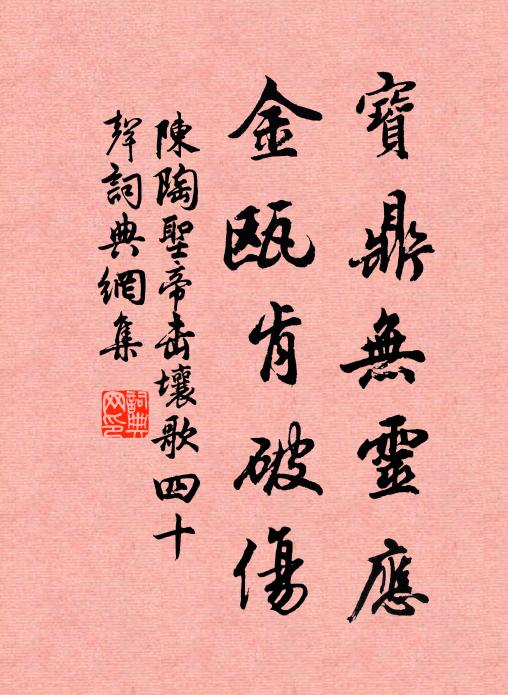 寶鼎無靈應
金甌肯破傷
陳陶聖帝击壤歌四十
聲詞典網集
詞典网印